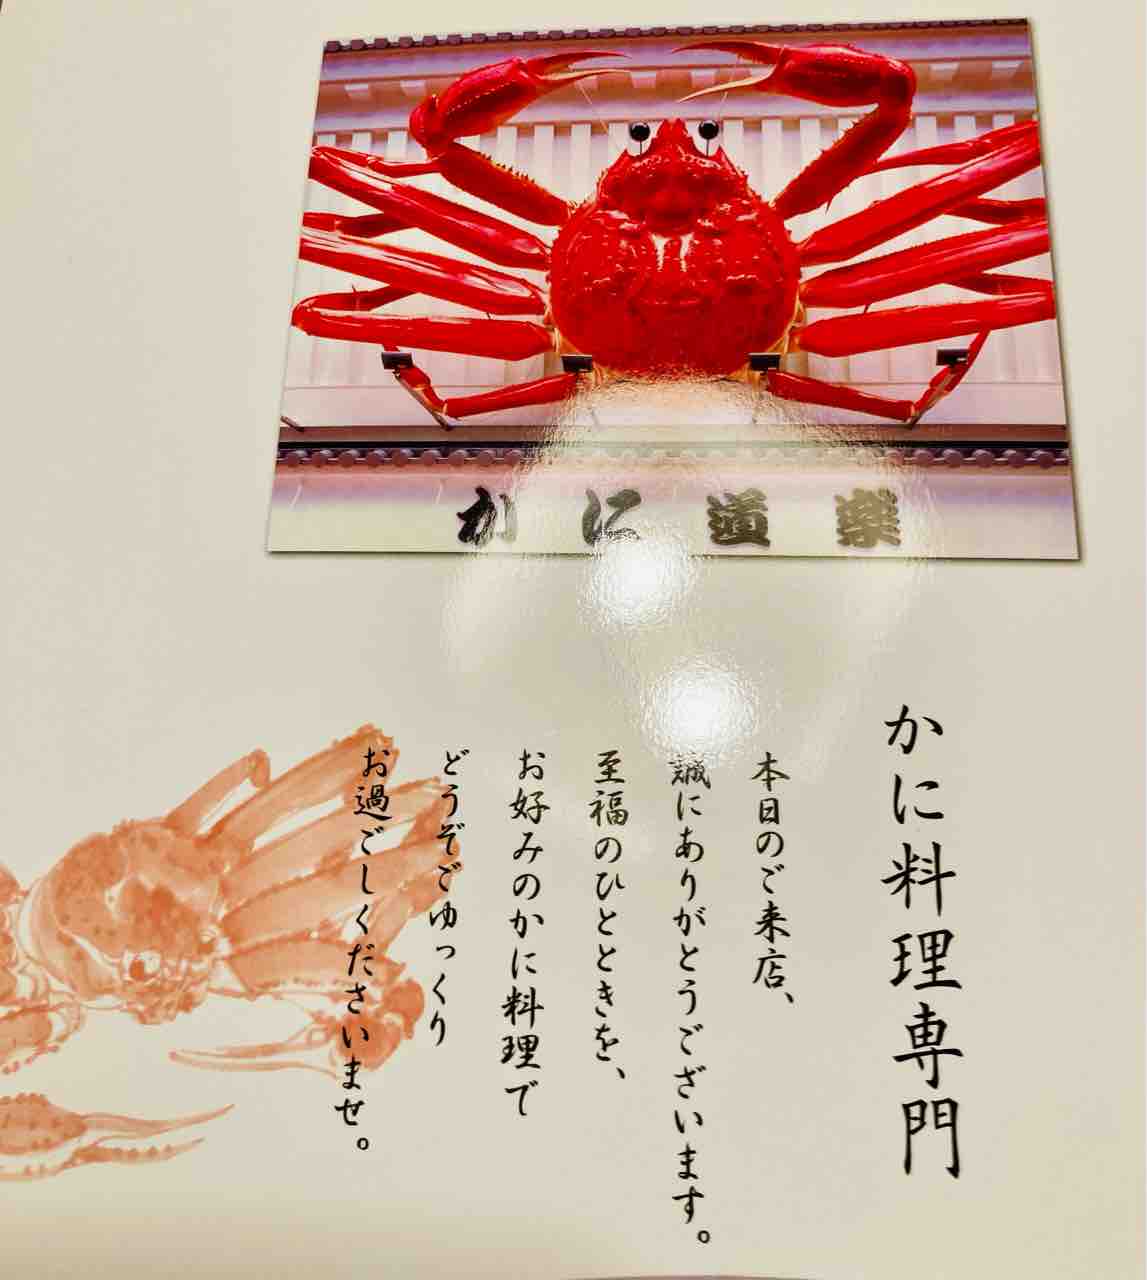 かに道楽
かに料理専門
本日のご来店、
誠にありがとうございます。
至福のひとときを、
お好みのかに料理で
どうぞごゆっくり
お過ごしくださいませ。